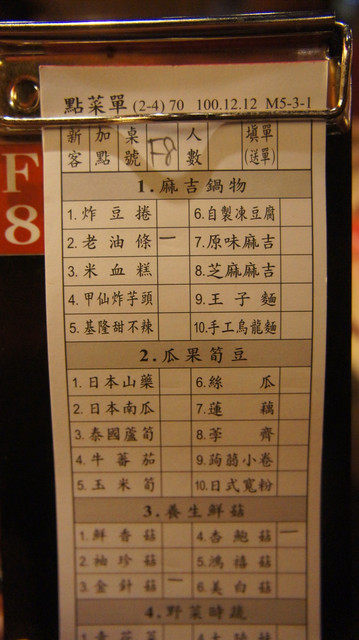 點菜單 (2-4) 70 100.12.12 M5-3-1
新客 加點 桌號 F8 人數 填單(送單)
F
8
1.麻吉鍋物
1.炸豆捲 6.自製凍豆腐
2.老油條 一 7.原味麻吉
3.米血糕 8.芝麻麻吉
4.甲仙炸芋頭 9.王子麵
5.基隆甜不辣 10.手工烏龍麵
2.瓜果筍豆
1.日本山藥 6.絲瓜
2.日本南瓜 7.蓮藕
3.泰國蘆筍 8.荸薺
4.牛蕃茄 9.蒟蒻小卷
5.玉米筍 10.日式寬粉
3.養生鮮菇
1.鮮香菇 4.杏鮑菇 一
2.袖珍菇 5.鴻禧菇
3.金針菇 一 6.美白菇
4.野菜時蔬